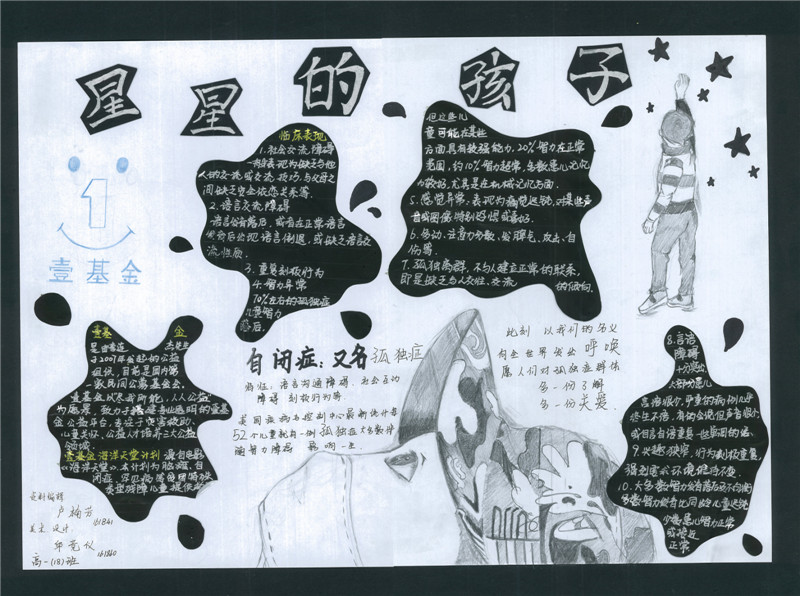 星星的孩子
临床表现
1.社会交流障碍
一般表现为缺乏与他
人的交流或交流技巧,与父母之
间缺乏安全依恋关系等.
2.语言交流障碍
语言发育落后,或者在正常语言
发育后出现语言倒退,或缺乏语言交
流性质.
3.重复刻板行为
4.智力异常
70%左右的孤独症
儿童智力
落后.
但这些儿
童可能在某些
方面具有较强能力,20%智力在正常
范围,约10%智力超常,多数患儿记忆
力较好,尤其是在机械记忆方面.
5.感觉异常,表现为痛觉迟钝,对某些声
音或图像特别恐惧或喜好.
6.多动、注意力分散、发脾气、攻击、自
伤等.
7.孤独离群,不与人建立正常的联系,
即是缺乏与人交往、交流 的倾向.
1
壹基金
壹基 金
是由李连 杰先生
于2007年发起的公益
组织,目前是国内第
一家民间公募基金会.
壹基金以尽我所能,人人公益
为愿景,致力于搭建专业透明的壹基
金公益平台,专注于灾害救助、
儿童关怀、公益人才培养三大公益
领域.
壹基金海洋天堂计划
自闭症:又名孤独症
特征:语言沟通障碍,社会互动
障碍,刻板行为等.
美国疾病与控制中心最新统计每
52个儿童就有一例孤独症大多数伴
随智力障碍
此刻 以我们的名义
向全世界发出呼唤
愿人们对孤独症群体
多一份了解
多一份关爱.
8.言语
障碍
十分突出
大部分患儿
言语很少,严重的病例几乎
终生不语,有的会说但声音很小
或自言自语重复一些单调的话.
9.兴趣狭窄,行为刻板重复,
强烈要求环境维持不变.
10.大多智力发育落后及不均衡
多数智力发育比同龄儿童迟钝
少数患儿智力正常
或接近
正常.
资料编辑
161841
美工设计
161860
高一(18)班